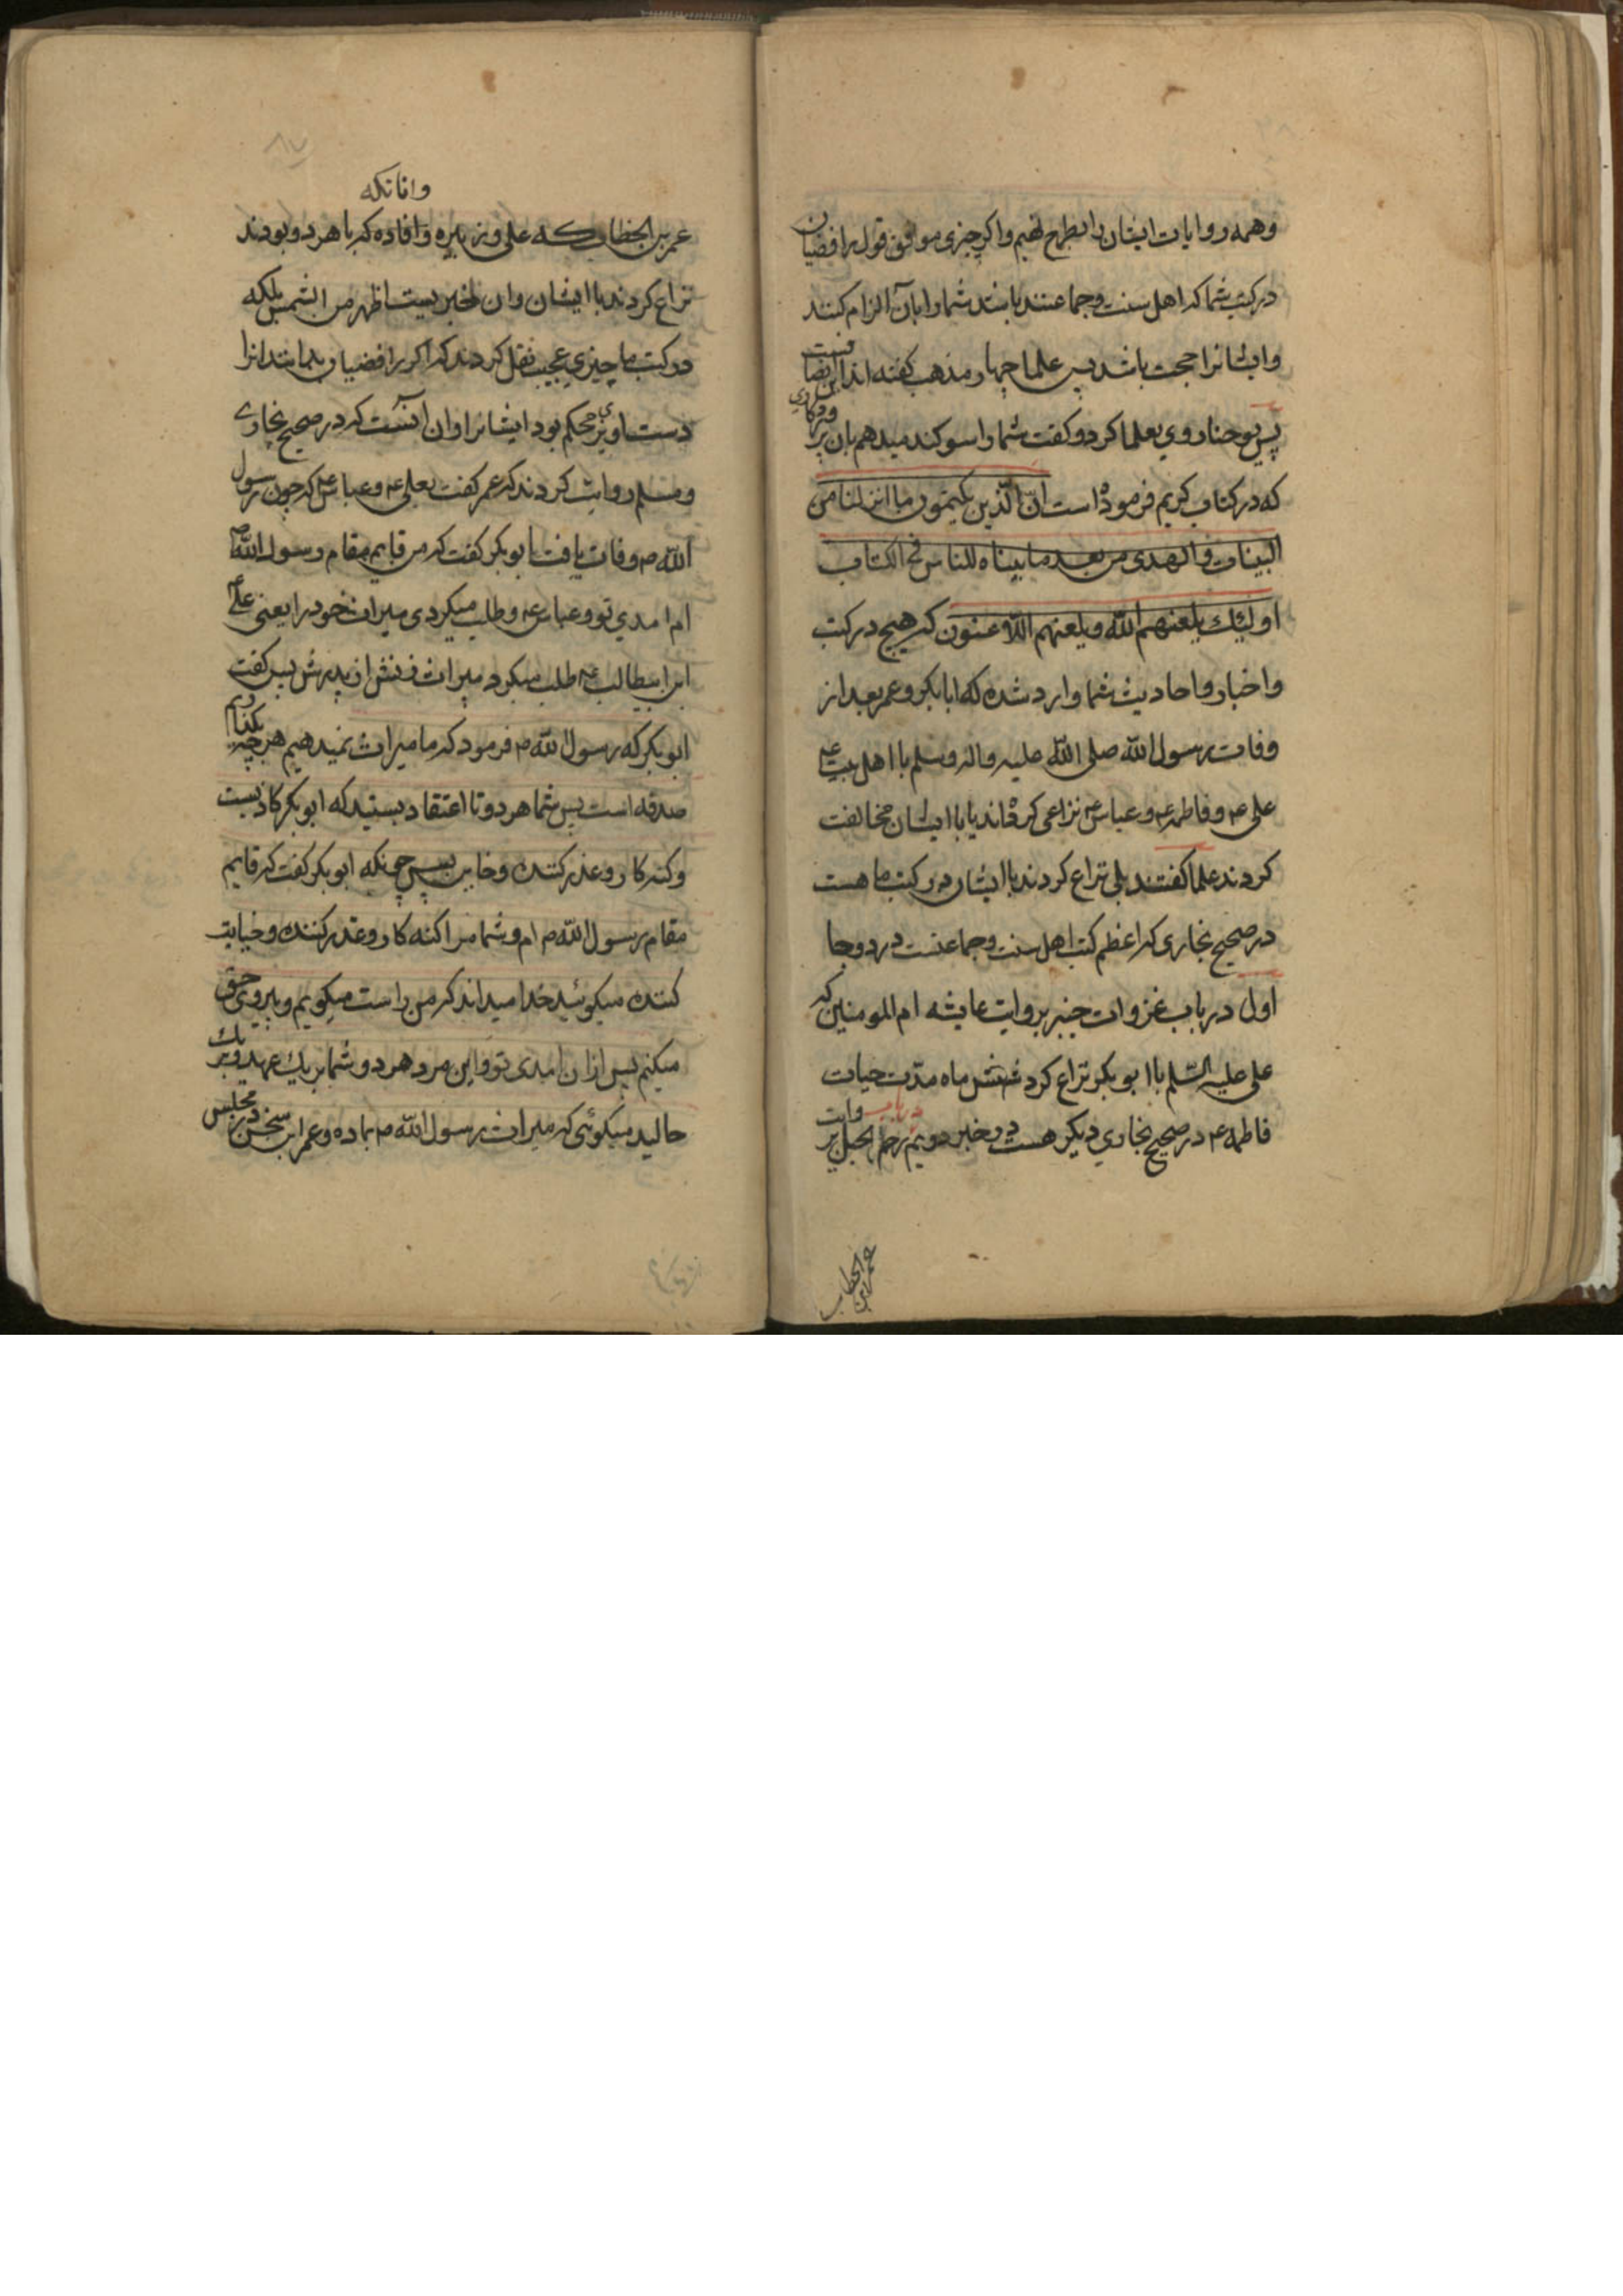 وهمه روایات ایشان را بطرح نهیم واکر چیزی موافق قول رافضیان
در کتب شما که اهل سنت وجماعتند باشند شما را بان الزام کنند
وایشانرا حجت باشد پس علما چهار مذهب کفته اند این انصافست
پس یوحنا روی بعلما کرد و کفت شما را سوکند میدهم بان
که در کتاب کریم فرموده است ان الذین یکتمون ما انزلنا من
البینات والهدی من بعد ما بیناه للناس فی الکتاب
اولئک یلعنهم الله ویلعنهم اللاعنون که هیچ در کتب
واخبار واحادیث شما وارد شده که ابابکر وعمر بعد از
وفات رسول الله صلی الله علیه واله وسلم با اهل بیت ع
علی ع وفاطمه ع وعباس ع نزاعی کرده اند یا با ایشان مخالفت
کردند علما کفتند بلی نزاع کردند با ایشان در کتب ما هست
در صحیح بخاری که اعظم کتب اهل سنت وجماعتست در دو جا
اول در باب غزوات خیبر بروایت عایشه ام المومنین که
علی علیه السلم با ابوبکر نزاع کرد شش ماه مدت حیات
فاطمه ع در صحیح بخاری دیکر هست در خبر دویم در باب
عمر بن الخطاب
وافاتکه
عمر بن الخطاب که علی و زبیره وافاده که با هر دو بودند
نزاع کردند با ایشان وان خبریست اظهر من الشمس بلکه
در کتب ما چیزی عجیب نقل کردند که اکر رافضیان بدانند انرا
دست اویزی محکم بود ایشانرا وان انست که در صحیح بخاری
ومسلم روایت کردند که عمر کفت بعلی ع وعباس ع که چون رسول
الله ص وفات یافت ابوبکر کفت که من قایم مقام رسول الله ص
ام امدی تو وعباس ع وطلب میکردی میراث خود را یعنی علی ع
ابن ابیطالب ع طلب میکرد میراث زنش از پدرش پس کفت
ابوبکر که رسول الله ص فرمود که ما میراث نمیدهیم هر چه بکذاریم
صدقه است پس شما هر دو تا اعتقاد بستید که ابوبکر کاذبست
وکنه کار وعذر کننده وخاین پس چونکه ابوبکر کفت که قایم
مقام رسول الله ص ام وشما مرا کنه کار وعذر کننده وخیانت
کننده میکوئید خدا میداند که من راست میکویم وپیروی حق
میکنم پس ازان امدی تو واین مرد هر دو شما بر یک عهد وبر یک
حالید میکوئی که میراث رسول الله ص بما ده وعمر این سخن در مجلس